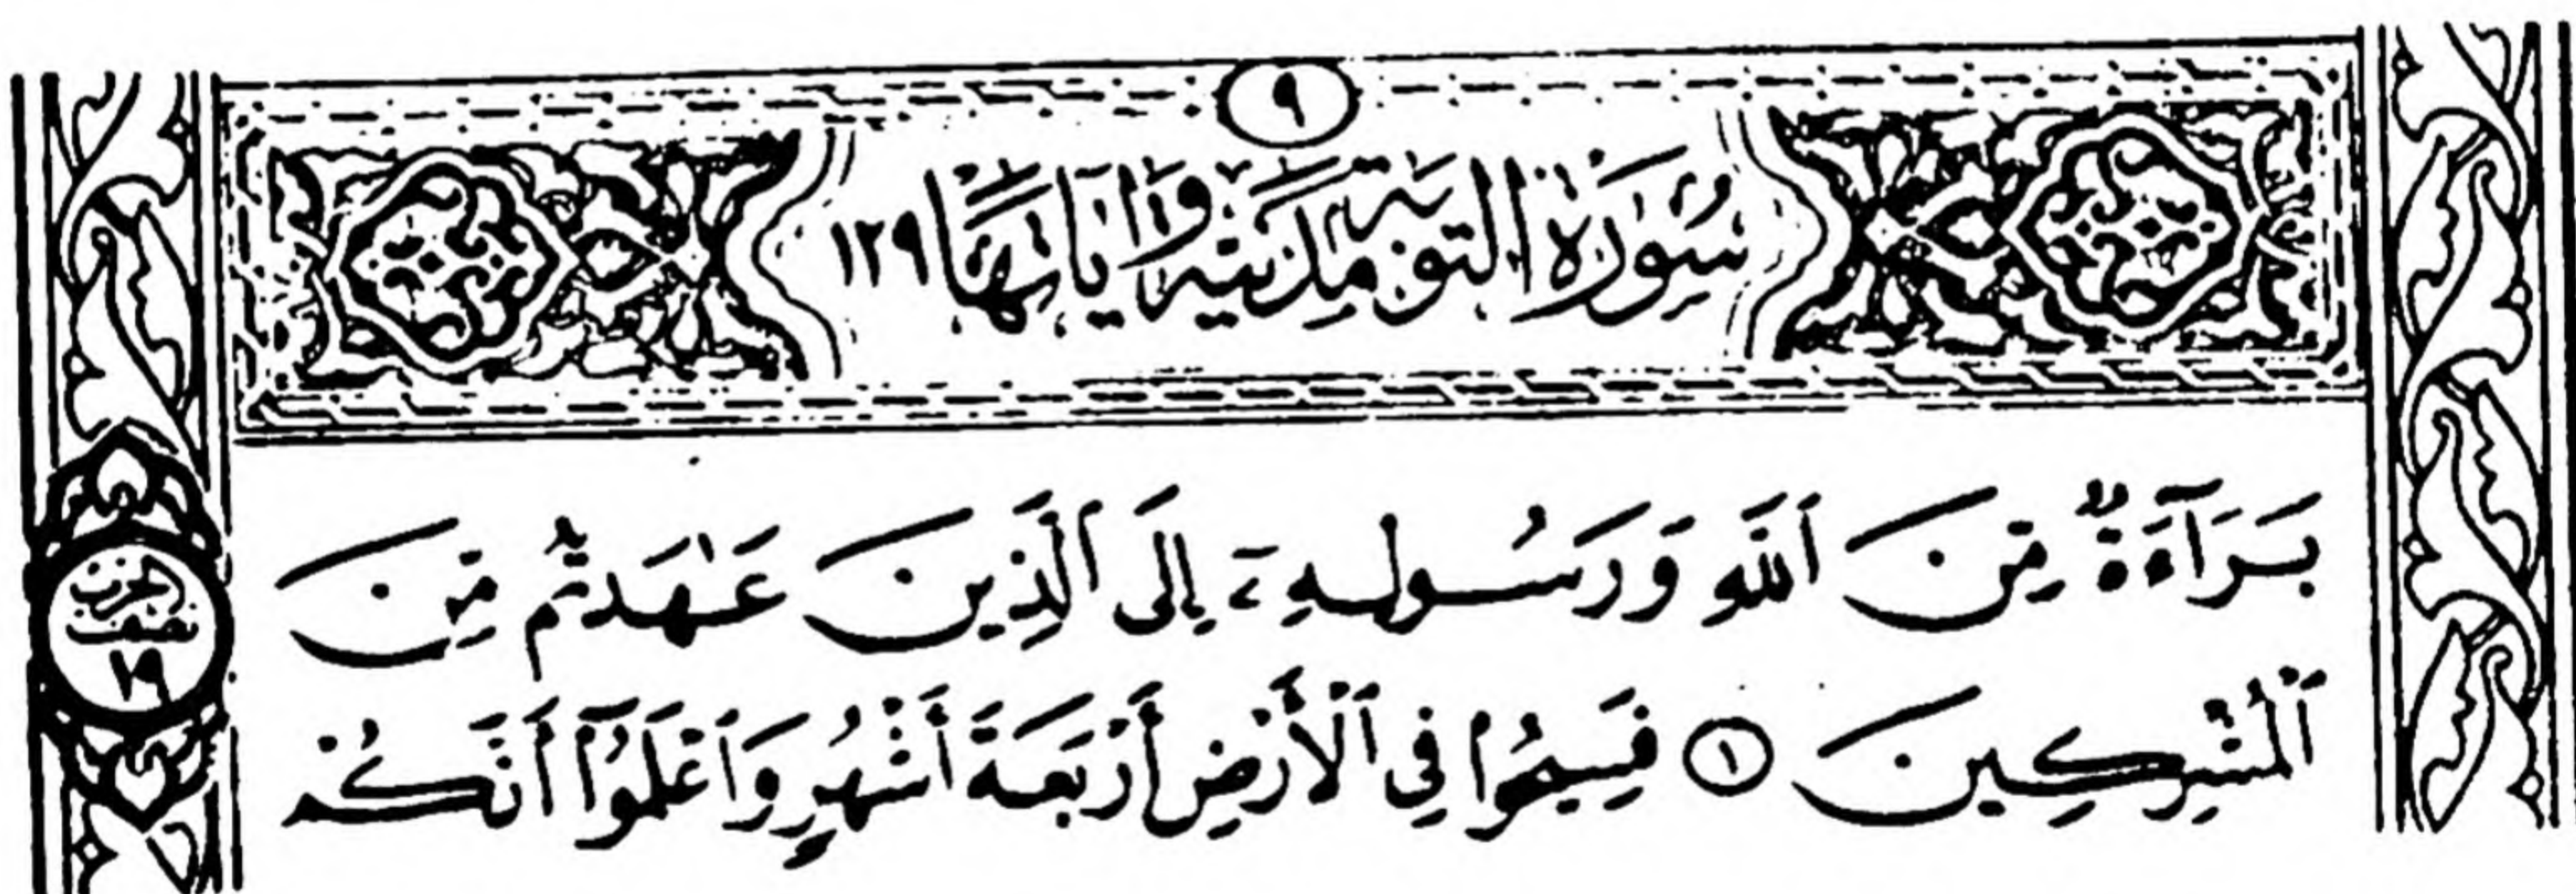 ٩
سُورَةُ التَّوْبَةِ مَدَنِيَّةٌ وَآيَاتُهَا ١٢٩
بَرَآءَةٌ مِّنَ ٱللَّهِ وَرَسُولِهِۦٓ إِلَى ٱلَّذِينَ عَٰهَدتُّم مِّنَ
ٱلْمُشْرِكِينَ ١ فَسِيحُوا۟ فِى ٱلْأَرْضِ أَرْبَعَةَ أَشْهُرٍ وَٱعْلَمُوٓا۟ أَنَّكُمْ
الحزب
نصف
١٩